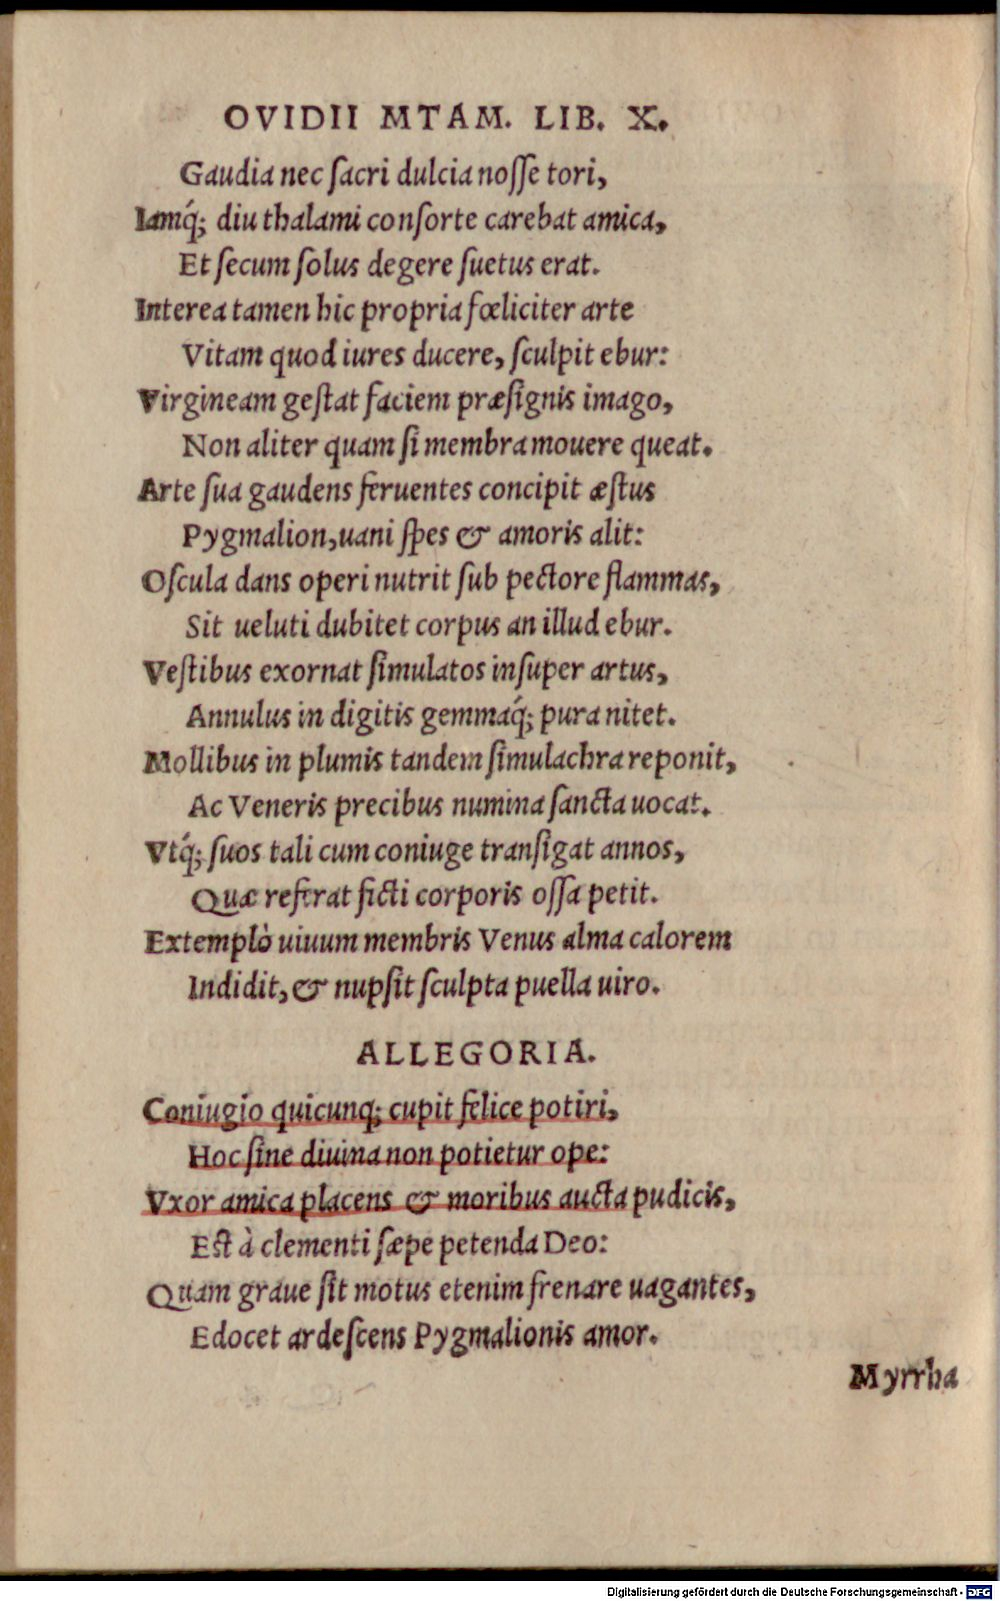 OVIDII MTAM. LIB. X.
Gaudia nec ſacri dulcia noſſe tori,
Iamq́; diu thalami conſorte carebat amica,
Et ſecum ſolus degere ſuetus erat.
Interea tamen hic propria fœliciter arte
Vitam quod iures ducere, ſculpit ebur:
Virgineam geſtat faciem præſignis imago,
Non aliter quam ſi membra mouere queat.
Arte ſua gaudens feruentes concipit æſtus
Pygmalion, uani ſpes & amoris alit:
Oſcula dans operi nutrit ſub pectore flammas,
Sit ueluti dubitet corpus an illud ebur.
Veſtibus exornat ſimulatos inſuper artus,
Annulus in digitis gemmaq́; pura nitet.
Mollibus in plumis tandem ſimulachra reponit,
Ac Veneris precibus numina ſancta uocat.
Vtq́; ſuos tali cum coniuge tranſigat annos,
Quæ referat ficti corporis oſſa petit.
Extemplò uiuum membris Venus alma calorem
Indidit, & nupſit ſculpta puella uiro.
ALLEGORIA.
Coniugio quicunq; cupit felice potiri,
Hoc ſine diuina non potietur ope:
Vxor amica placens & moribus aucta pudicis,
Eſt à clementi ſæpe petenda Deo:
Quam graue ſit motus etenim frenare uagantes,
Edocet ardeſcens Pygmalionis amor.
Myrrha
Digitalisierung gefördert durch die Deutsche Forschungsgemeinschaft - DFG